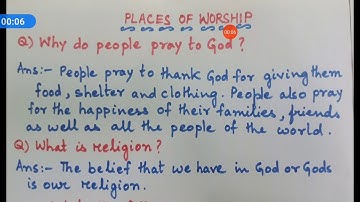 00:06
PLACES OF WORSHIP
00:06
Q) Why do people pray to God?
Ans:- People pray to thank God for giving them
food, shelter and clothing. People also pray
for the happiness of their families, friends
as well as all the people of the world.
Q) What is religion?
Ans:- The belief that we have in God or Gods
is our religion.